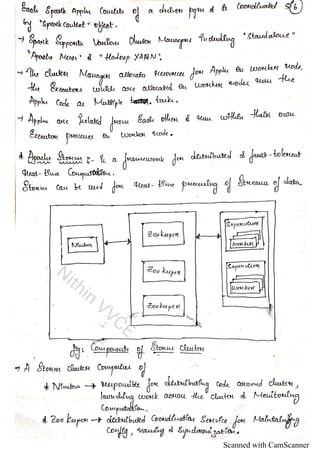 Each Spark Appln Consists of a driver pgm & is coordinated 56
by "Spark Context" object.
→ Spark Supports Various Cluster Managers including "Standalone"
"Apache Mesos" & "Hadoop YARN".
→ The Cluster Manager allocates resources for Applns on worker node.
the Executors which are allocated on worker nodes run the
Appln Code as Multiple tasks.
→ Applns are Isolated from Each other & run within their own
Executor processes on Worker node.
* Apache Storm :- is a framework for distributed & fault-tolerant
real-time Computation.
Storm can be used for real-time processing of Streams of data.
Nimbus
Zookeeper
Zookeeper
Zookeeper
Supervisor
Worker
Supervisor
Worker
Nithin VVCE
fig: Components of Storm Cluster
→ A Storm Cluster Comprises of
* Nimbus → responsible for distributing code around cluster,
launching work across the cluster & Monitoring
Computation.
* Zookeeper → distributed Coordination Service for Maintaining
Config, naming & Synchronization.
Scanned with CamScanner